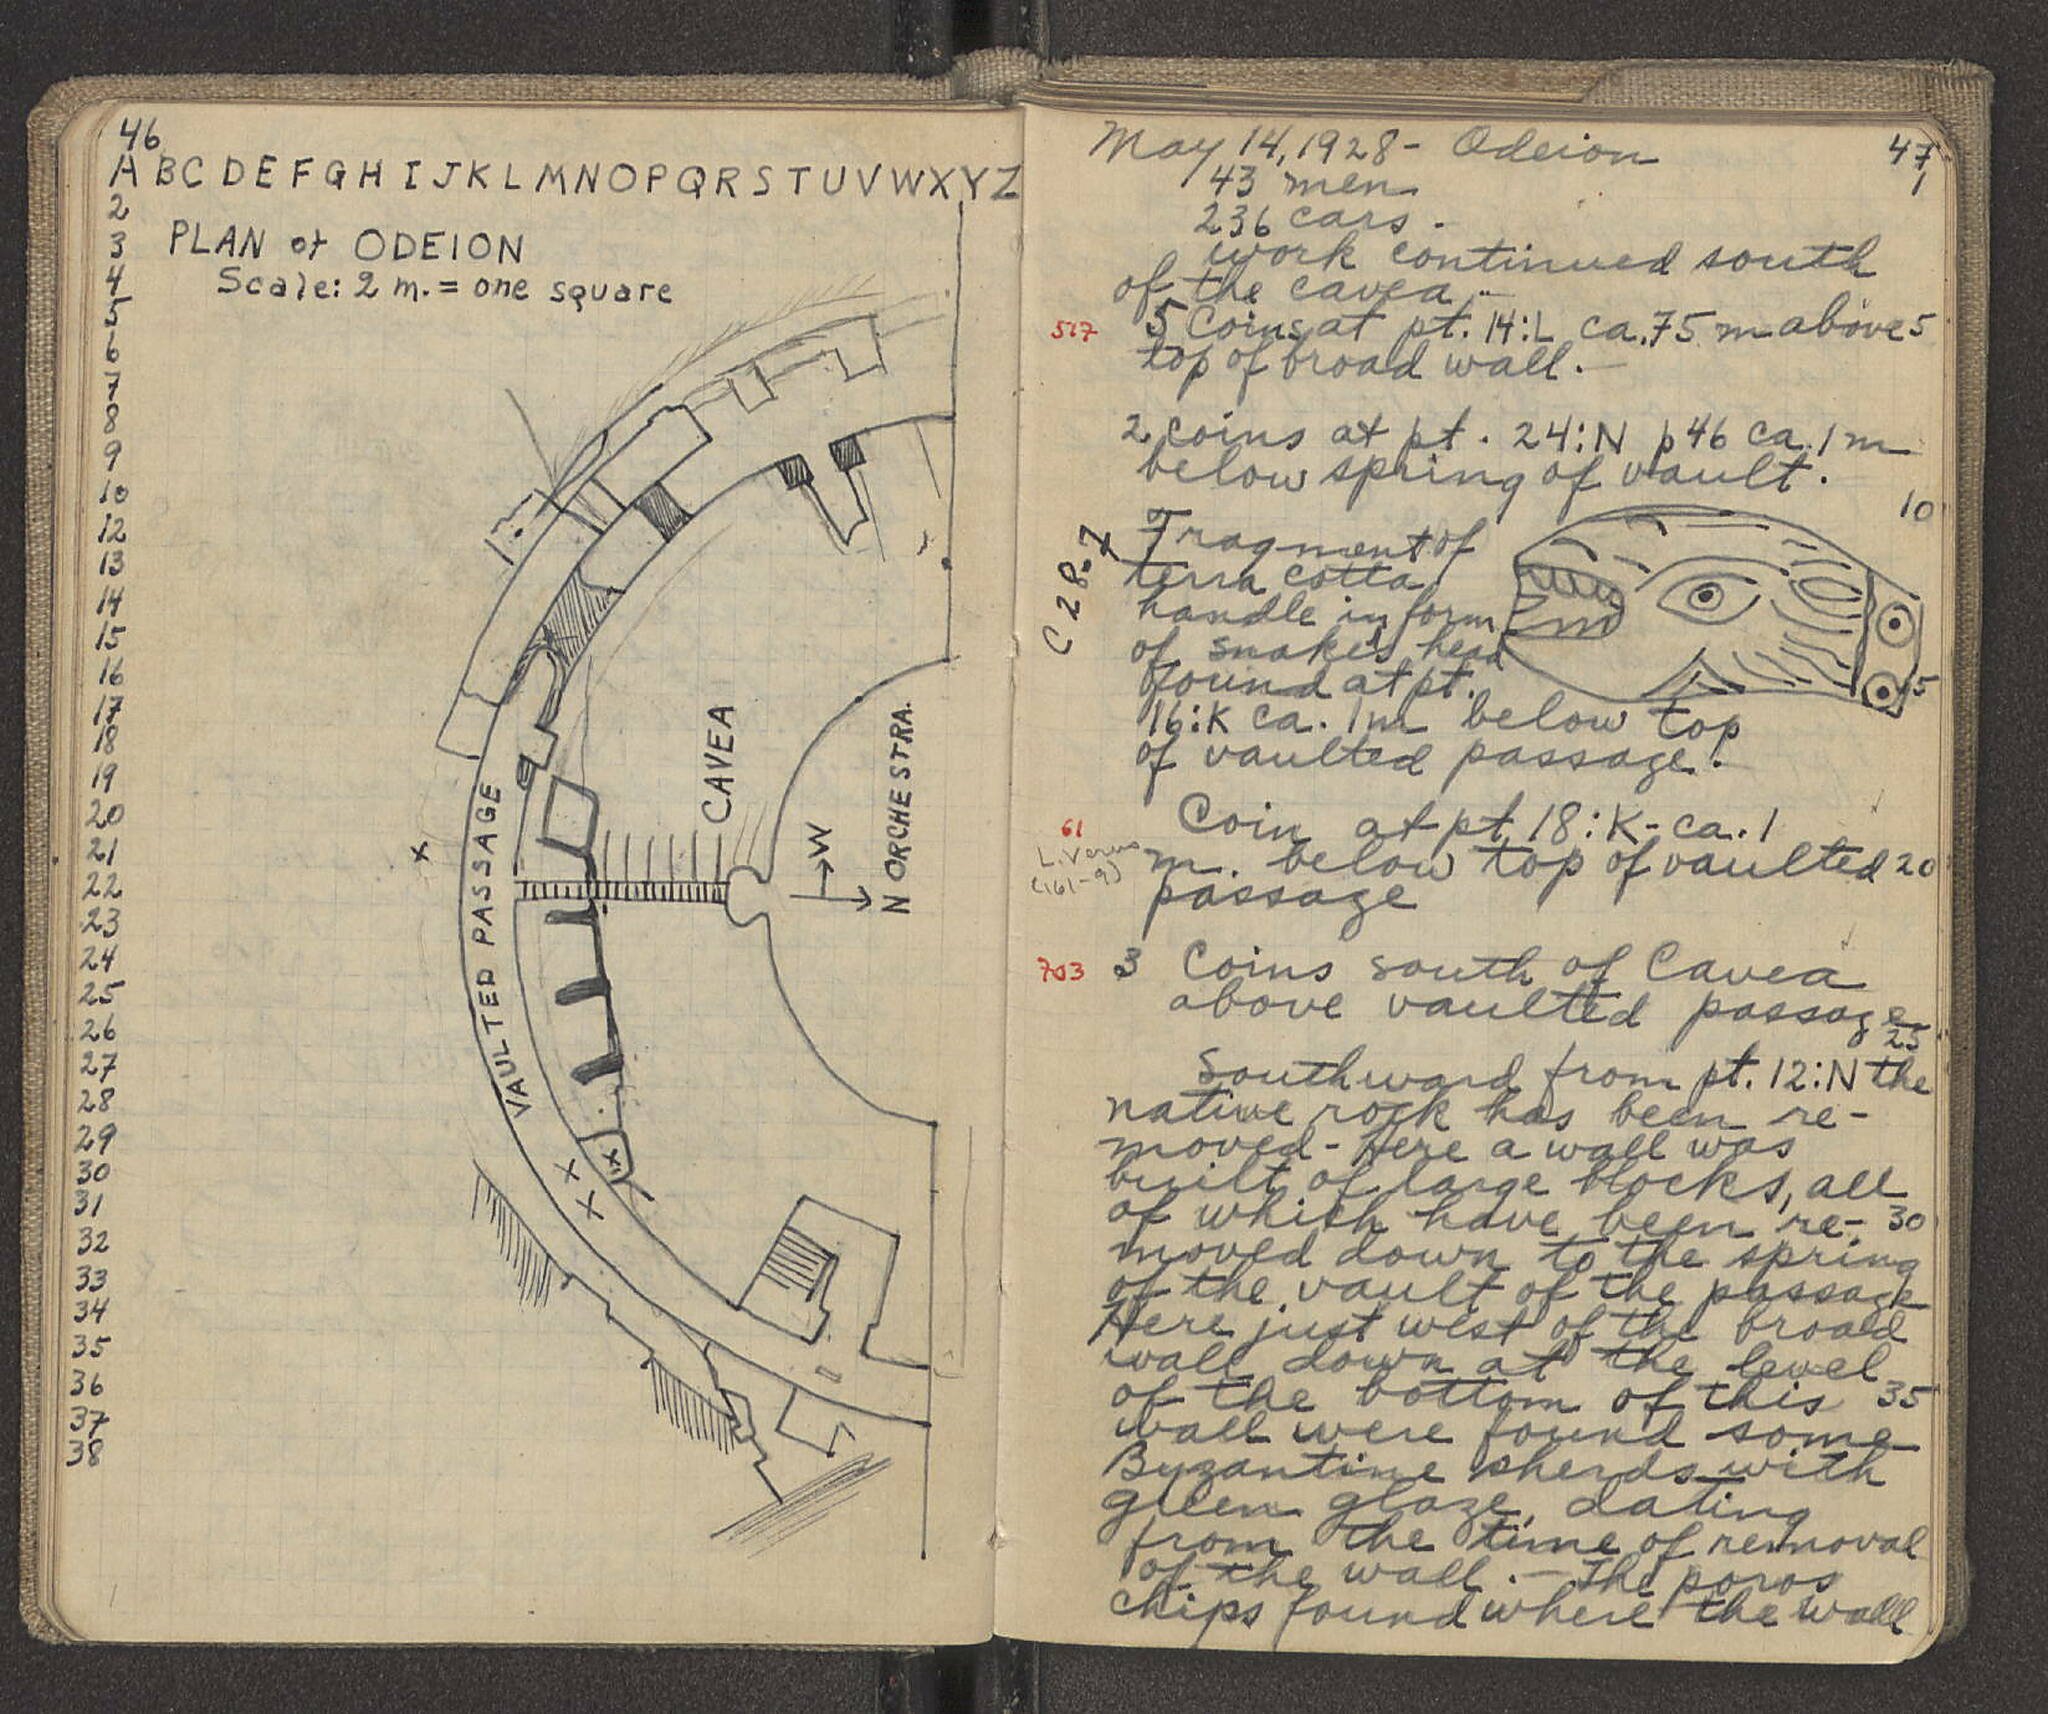 46
A B C D E F G H I J K L M N O P Q R S T U V W X Y Z
2
3
PLAN of ODEION
4
Scale: 2 m. = one square
5
6
7
8
9
10
12
13
14
15
16
17
18
19
20
21
22
23
24
25
26
27
28
29
30
31
32
33
34
35
36
37
38
VAULTED PASSAGE
CAVEA
ORCHESTRA.
W
N
x
x
x
x
May 14, 1928 - Odeion
47
1
43 men
236 cars.
work continued south
of the cavea.
517
5 Coins at pt. 14:L ca .75 m above
5
top of broad wall. -
2 coins at pt. 24:N p 46 ca. 1 m
below spring of vault.
10
C 28-7
Fragment of
terra cotta
handle in form
of snake's head
found at pt.
15
16:K ca. 1m below top
of vaulted passage.
61
L. Verus
(161-9)
Coin at pt 18:K - ca. 1
m. below top of vaulted
20
passage
703
3 Coins south of Cavea
above vaulted passage
25
Southward from pt. 12:N the
native rock has been re-
moved - Here a wall was
built of large blocks, all
of which have been re-
30
moved down to the spring
of the vault of the passage
Here just west of the broad
wall down at the level
of the bottom of this
35
wall were found some
Byzantine sherds with
green glaze, dating
from the time of removal
of the wall. - The poros
chips found where the wall